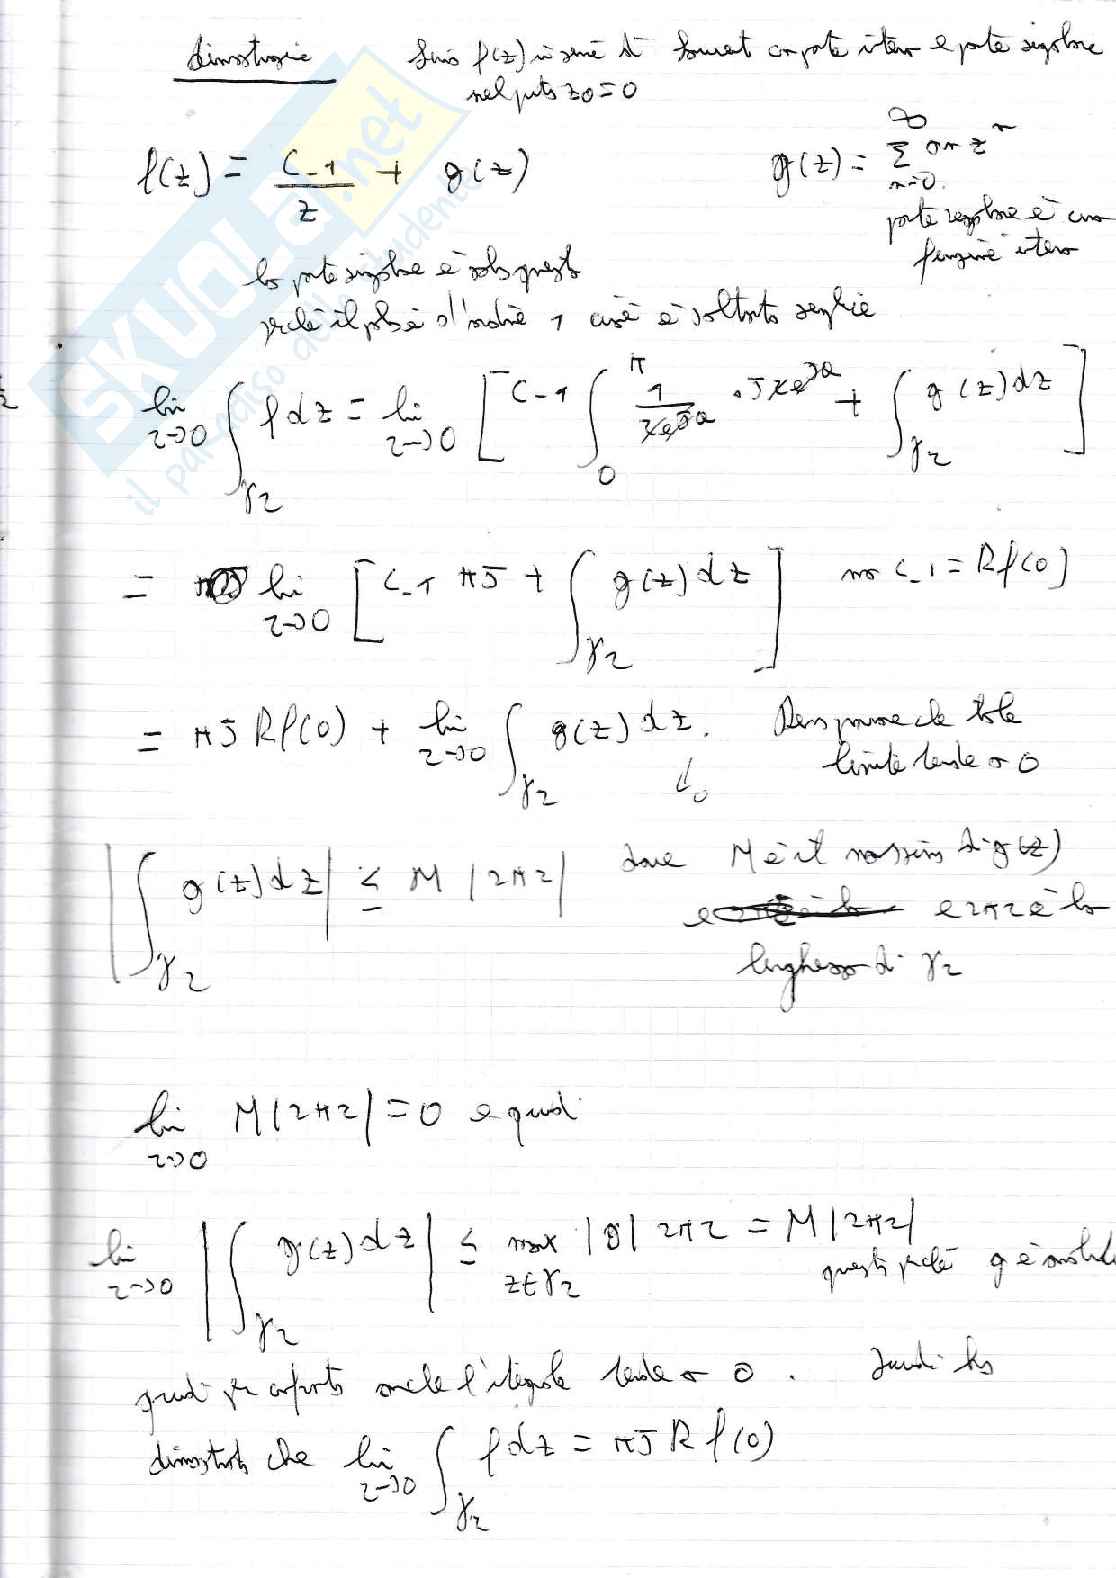 dimostrazione Scrivo f(z) in serie di Laurent con parte intera e parte singolare
nel punto z0=0
f(z) = C_-1 / z + g(z) g(z) = ∑_{n=0}^{∞} an z^n
parte regolare è una
funzione intera
la parte singolare è solo questa
perché il polo è d'ordine 1 cioè è soltanto semplice
lim_{r→0} ∫_{γr} f dz = lim_{r→0} [ C_-1 ∫_0^π 1/(r e^{Jθ}) · J r e^{Jθ} + ∫_{γr} g(z) dz ]
= lim_{r→0} [ C_-1 πJ + ∫_{γr} g(z) dz ] ma C_-1 = Rf(0)
= πJ Rf(0) + lim_{r→0} ∫_{γr} g(z) dz. Devo provare che tale
↓0 limite tende a 0
| ∫_{γr} g(z) dz | ≤ M |2πr| dove M è il massimo di g(z)
e 2πr è la
lunghezza di γr
lim_{r→0} M|2πr| = 0 e quindi
lim_{r→0} | ∫_{γr} g(z) dz | ≤ max_{z∈γr} |g| 2πr = M|2πr|
questo perché g è
quindi per confronto anche l'integrale tende a 0. Quindi ho
dimostrato che lim_{r→0} ∫_{γr} f dz = πJ R f(0)
SKUOLA.net
il paradiso dello studente